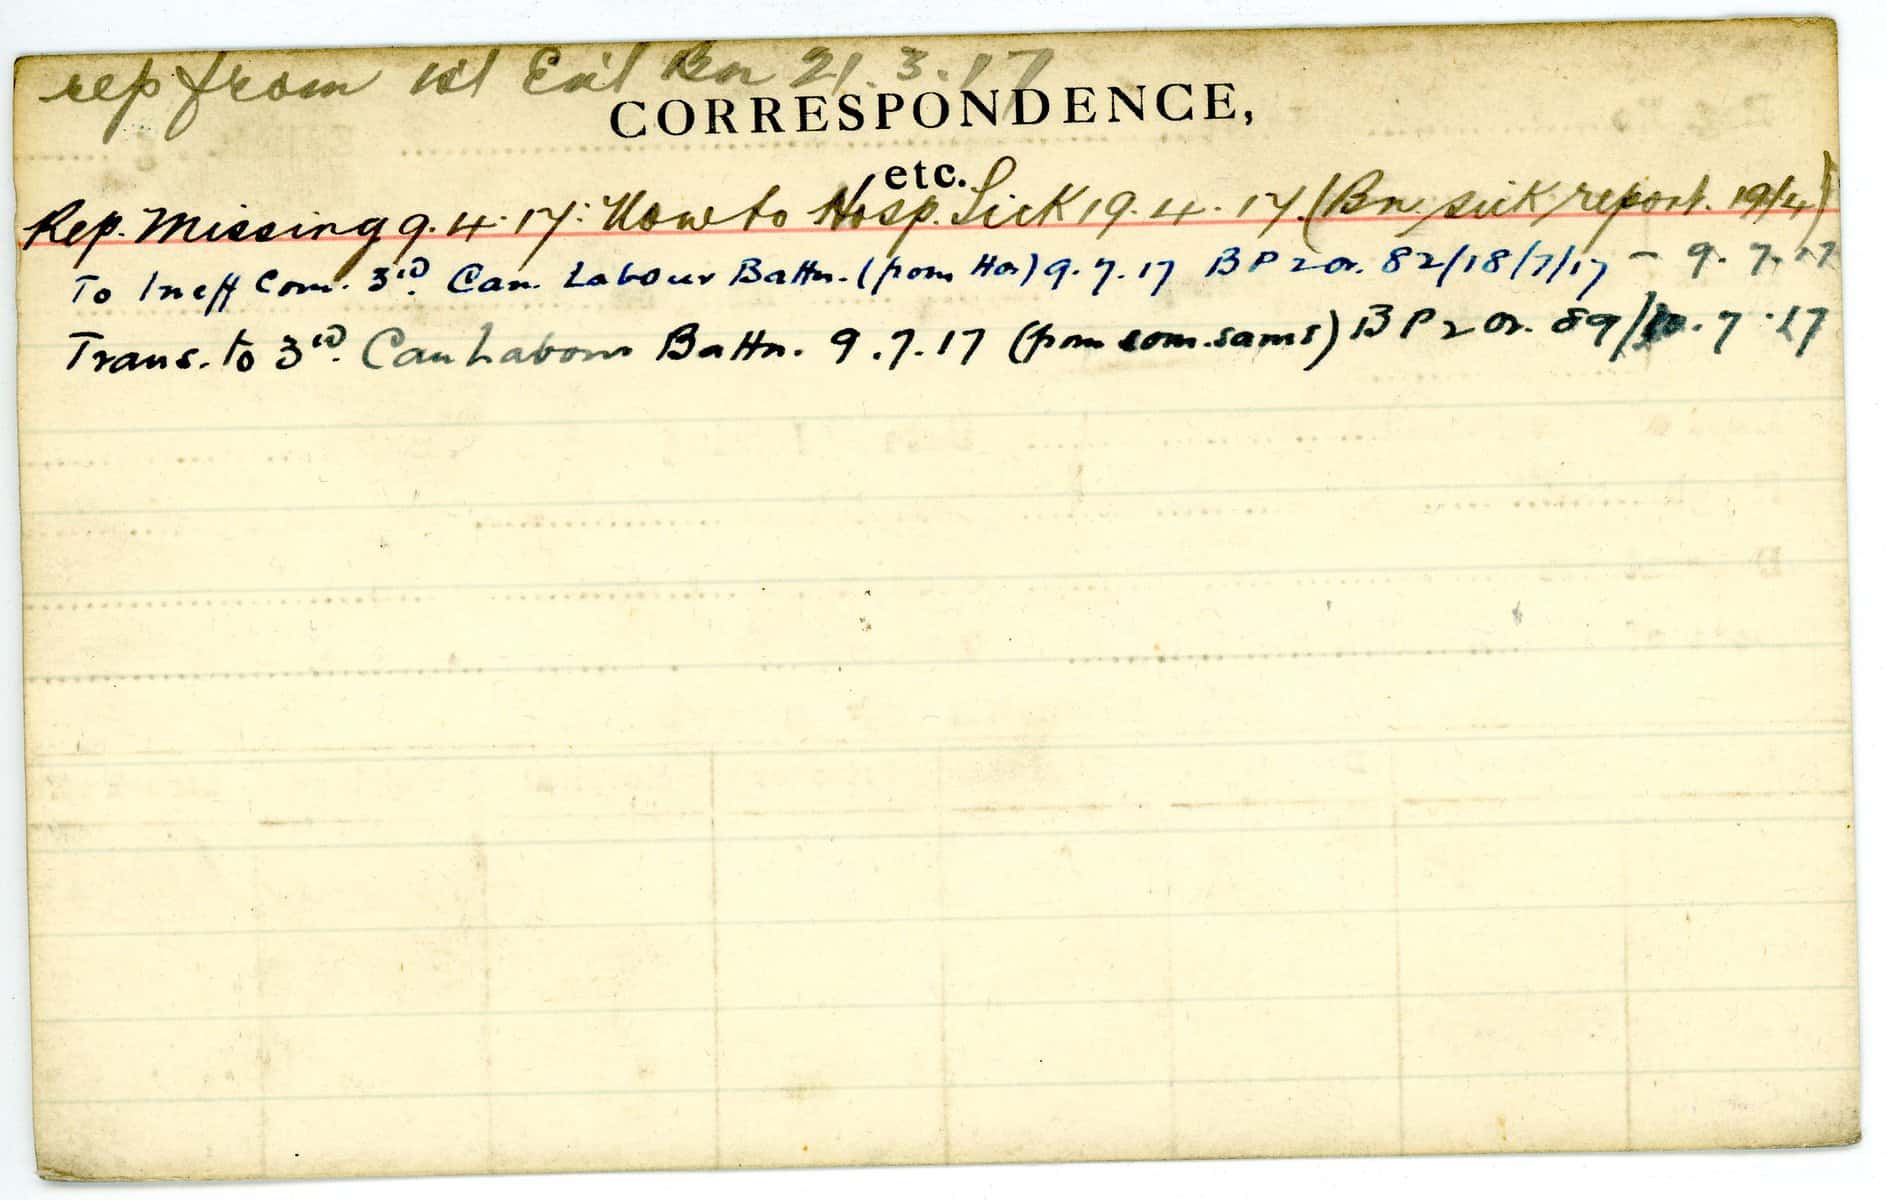 rep from 1st Ent Bn 21.3.17
CORRESPONDENCE,
etc.
Rep. Missing 9.4.17: Now to Hosp. Sick 19.4.17. (Bn. sick report. 19/4)
To Ineff Com. 3rd. Can. Labour Battn. (from Hos) 9.7.17 BP 2 or. 82/18/7/17 - 9.7.17
Trans. to 3rd. Can Labour Battn. 9.7.17 (from com. same) BP 2 or. 89/ .7.17